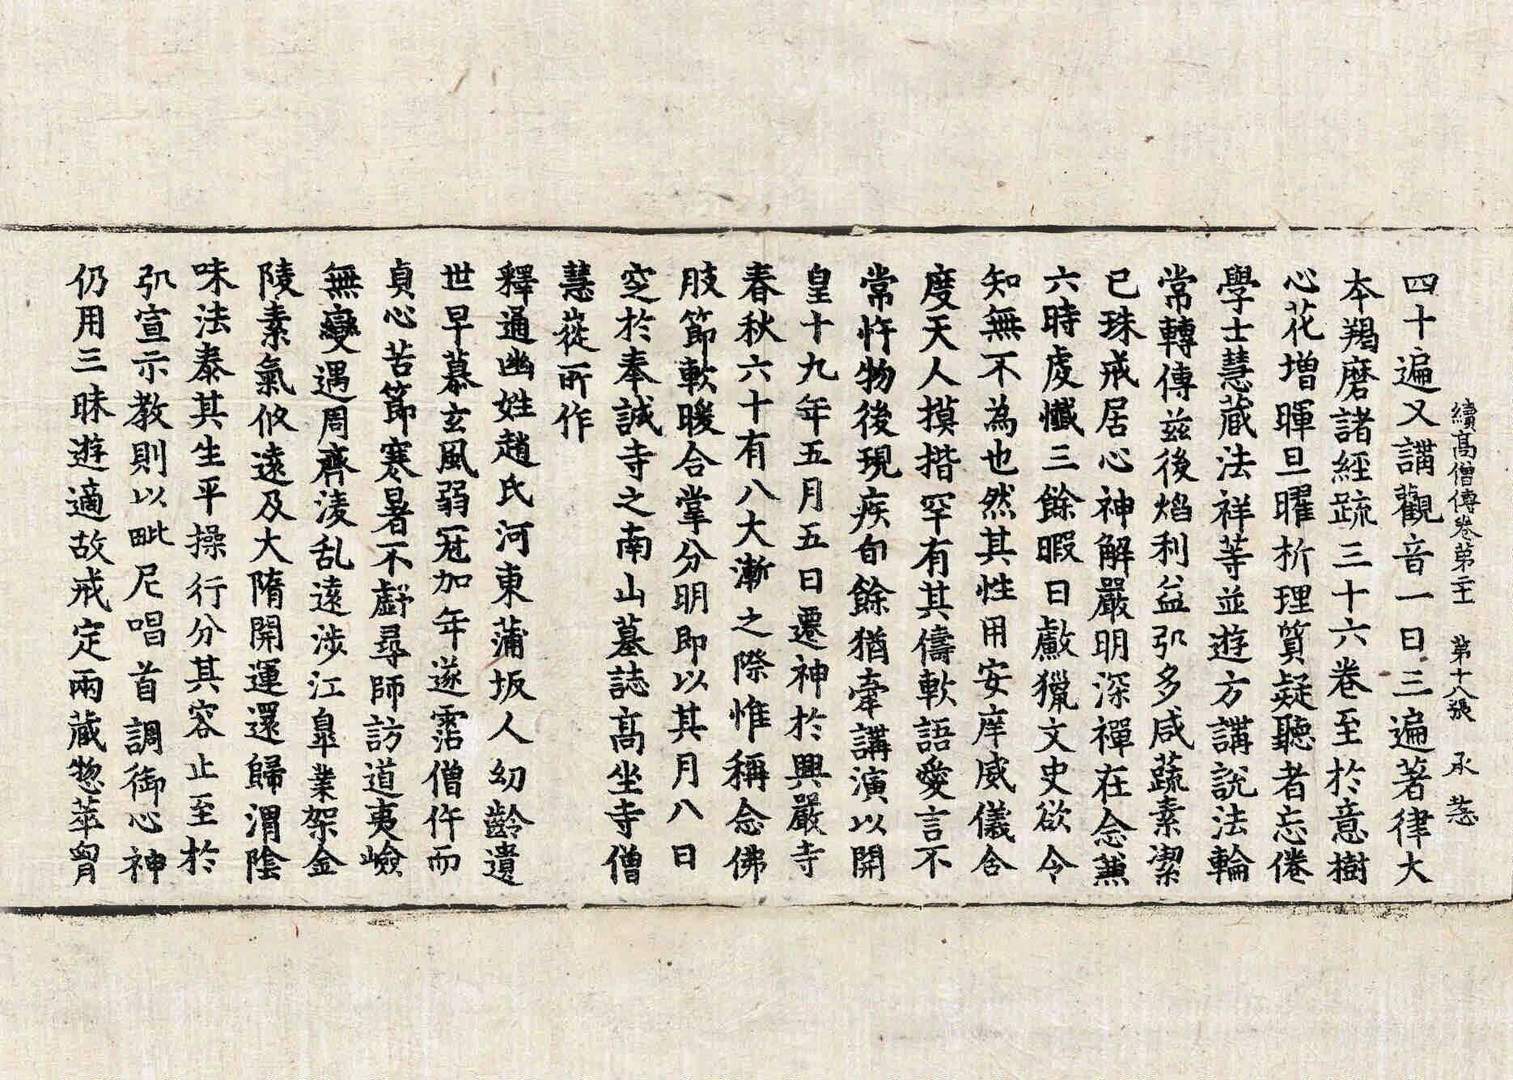 續高僧傳卷第二十一 第十八張 承 㳟
四十遍又講觀音一日三遍著律大
本羯磨諸經䟽三十六卷至於意樹
心花增暉旦曜析理質疑聽者忘倦
學士慧蔵法祥等並遊方講說法輪
常轉傳兹後焰利益弘多咸蔬素潔
已珠戒居心神解嚴明深禪在念兼
六時虔懺三餘暇日歔獵文史欲令
知無不為也然其性用安庠威儀合
度天人摸揩罕有其儔軟語愛言不
常忤物後現疾旬餘猶牽講演以開
皇十九年五月五日遷神於興嚴寺
春秋六十有八大漸之際惟稱念佛
肢節軟暖合掌分明即以其月八日
窆於奉誠寺之南山墓誌髙坐寺僧
慧嵸所作
釋通幽姓趙氏河東蒲坂人幼齡遺
世早慕玄風弱冠加年遂霑僧伍而
貞心苦節寒暑不虧尋師訪道夷嶮
無變遇周齊淩乱遠涉江皐業架金
陵素氣攸遠及大隋開運還歸渭陰
味法泰其生平操行分其容止至於
弘宣示教則以毗尼唱首調御心神
仍用三昧遊適故戒定兩蔵惣萃胷